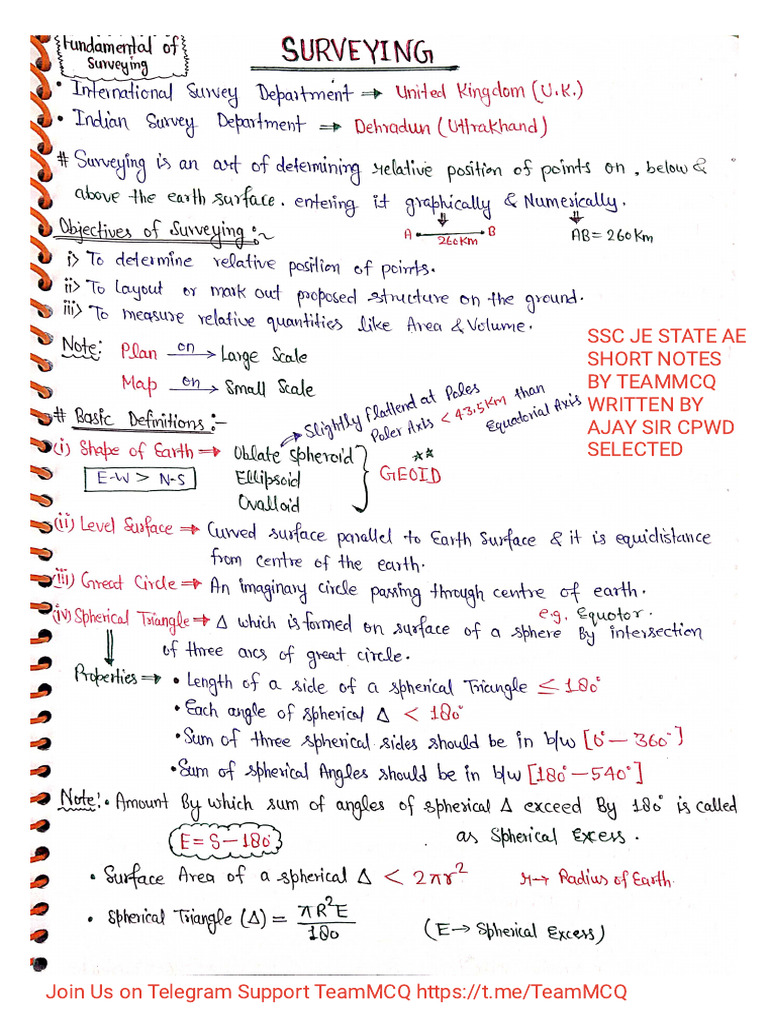 Fundamental of
Surveying
SURVEYING
• International Survey Department → United Kingdom (U.K.)
• Indian Survey Department → Dehradun (Uttrakhand)
# Surveying is an art of determining relative position of points on, below &
above the earth surface. entering it graphically & Numerically.
A 260Km B AB = 260Km
Objectives of Surveying :~
i> To determine relative position of points.
ii> To Layout or mark out proposed structure on the ground.
iii> To measure relative quantities like Area & Volume.
Note: Plan on→ Large Scale
Map on→ Small Scale
SSC JE STATE AE
SHORT NOTES
BY TEAMMCQ
WRITTEN BY
AJAY SIR CPWD
SELECTED
# Basic Definitions :-
Slightly flattend at Poles
Poler Axis < 43.5Km than
Equatorial Axis
(i) Shape of Earth → Oblate spheroid
E-W > N-S
Ellipsoid
Ovalloid
** GEOID
(ii) Level Surface → Curved surface parallel to Earth Surface & it is equidistance
from centre of the earth.
(iii) Great Circle → An imaginary circle passing through centre of earth.
e.g. Equotor.
(iv) Spherical Triangle → Δ which is formed on surface of a sphere By intersection
of three arcs of great circle.
Properties → • Length of a side of a spherical Triangle ≤ 180°
• Each angle of spherical Δ < 180°
• Sum of three spherical sides should be in b/w [0° — 360°]
• Sum of spherical Angles should be in b/w [180° — 540°]
Note: • Amount By which sum of angles of spherical Δ exceed By 180° is called
as Spherical Excess.
E = S — 180°
• Surface Area of a spherical Δ < 2πr² r → Radius of Earth.
• Spherical Triangle (Δ) = πR²E / 180 (E → Spherical Excess)
Join Us on Telegram Support TeamMCQ https://t.me/TeamMCQ